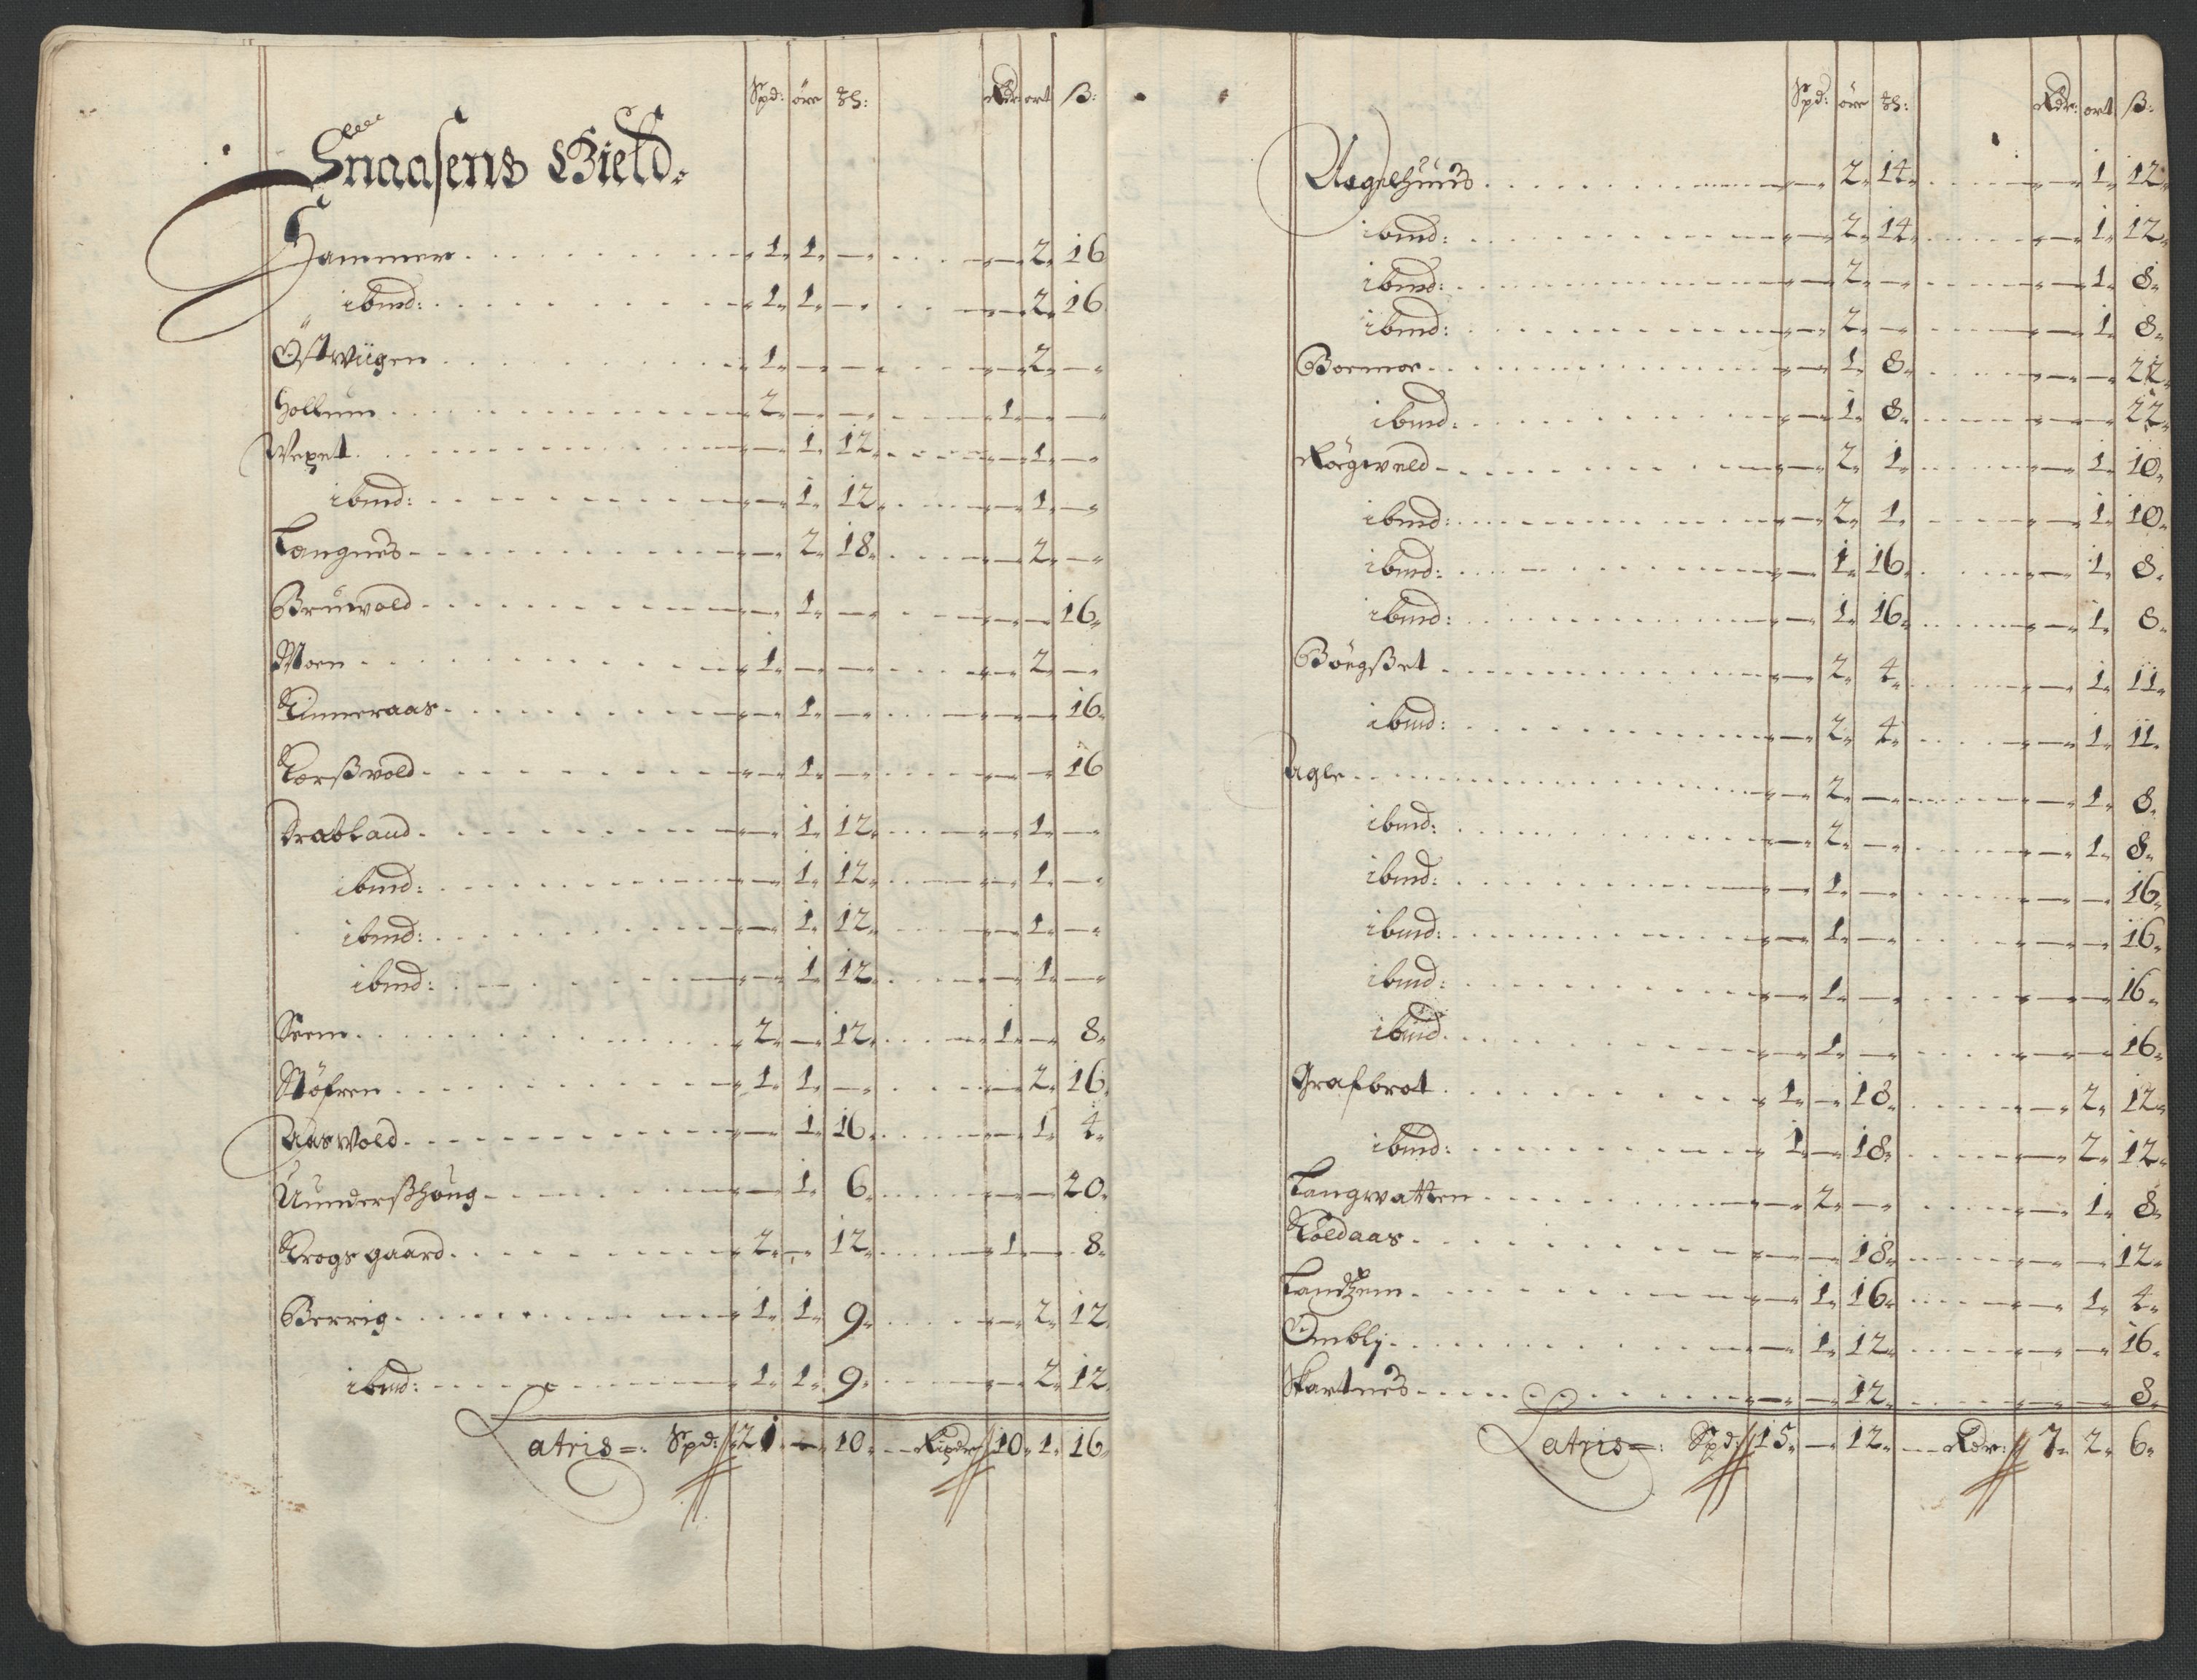 Spd: øre ß: Rdr: ort ß:
Snaasens Gield.
Hammer 1. 1. — — 2. 16
ibmd: 1. 1. — — 2. 16
Östwiigen 1. — — — 2. —
Hollum 2. — — 1. — —
Wexet — 1. 12. — 1. —
ibmd: — 1. 12. — 1. —
Langnes — 2. 18. — 2. —
Bruvold — 1. — — — 16.
Moen 1. — — — 2. —
Kinneraas — 1. — — — 16.
Korßvold — 1. — — — 16
Drabland — 1. 12. — 1. —
ibmd: — 1. 12. — 1. —
ibmd: — 1. 12. — 1. —
ibmd: — 1. 12. — 1. —
Seem 2. — 12. 1. — 8.
Støfren 1. 1. — — 2. 16.
Aaswold — 1. 16. — 1. 4.
Uunderßhoug — 1. 6. — — 20.
Krogsgaard 2. — 12. 1. — 8.
Berrig 1. 1. 9. — 2. 12.
ibmd: 1. 1. 9. — 2. 12.
Latris =: Spd: 21. — 10. — Rixdr 10. 1. 16.
Spd: øre ß: Rdr: ort ß:
Aagelhuus — 2. 14. — 1. 12.
ibmd: — 2. 14. — 1. 12.
ibmd: — 2. — — 1. 8.
ibmd: — 2. — — 1. 8.
Bormor — 1. 8. — — 22.
ibmd: — 1. 8. — — 22.
Rörgweld — 2. 1. — 1. 10.
ibmd: — 2. 1. — 1. 10.
ibmd: — 1. 16. — 1. 8.
ibmd: — 1. 16. — 1. 8.
Börgßet — 2. 4. — 1. 11.
ibmd: — 2. 4. — 1. 11.
Agle — 2. — — 1. 8.
ibmd: — 2. — — 1. 8.
ibmd: — 1. — — — 16.
ibmd: — 1. — — — 16.
ibmd: — 1. — — — 16.
ibmd. — 1. — — — 16.
Grafbrot 1. — 18. — 2. 12.
ibmd: 1. — 18. — 2. 12.
Langvatten — 2. — — 1. 8.
Koldaas — — 18. — — 12.
Landzem — 1. 16. — 1. 4.
Ombly — 1. 12. — — 16.
Skartnes — — 12. — — 8.
Latris =: Spd: 15. — 12. — Rdr: 7. 2. 6.